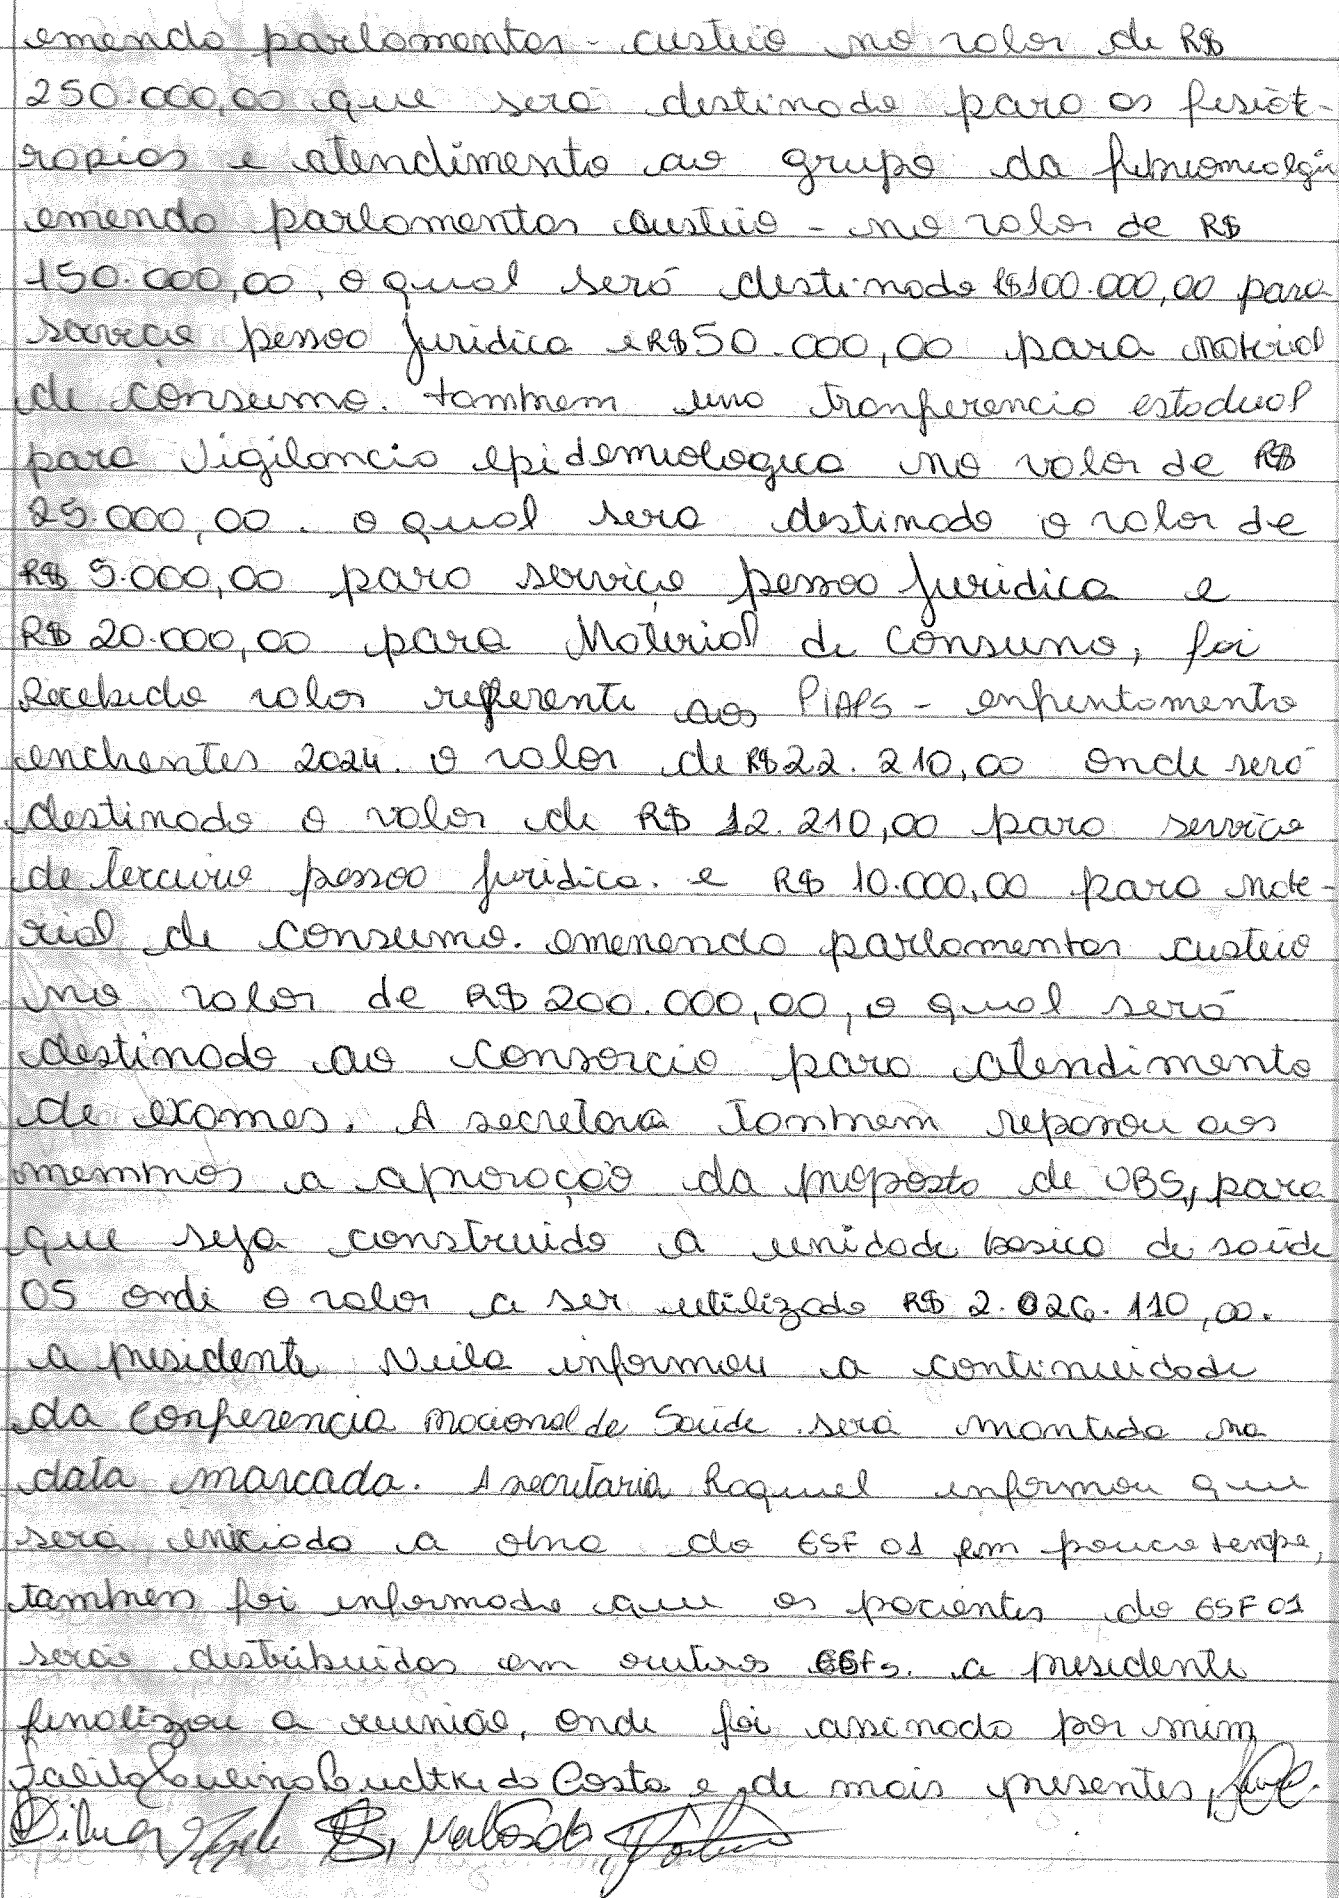 emenda parlamentar - custeio no valor de R$
250.000,00 que será destinado para as fisiot-
rapias e atendimento ao grupo da fibriomialgia
emenda parlamentar custeio - no valor de R$
150.000,00, o qual será destinado R$100.000,00 para
serviço pessoa jurídica e R$50.000,00 para material
de consumo. tambem uma tranferencia estadual
para Vigilancia epidemiologica no valor de R$
25.000,00. o qual sera destinado o valor de
R$ 5.000,00 para serviço pessoa jurídica e
R$ 20.000,00 para Material de Consumo, foi
Recebido valor referente aos PIAPS - enfrentamento
enchentes 2024. o valor de R$22.210,00 onde será
destinado o valor de R$ 12.210,00 para serviço
de terceiro pessoa jurídica. e R$ 10.000,00 para mate-
rial de consumo. emenenda parlamentar custeio
no valor de R$ 200.000,00, o qual será
destinado ao consorcio para atendimento
de exames. A secretaria tambem repassou aos
membros a aprovação da proposta de UBS, para
que seja construida a unidade basica de saúde
05 onde o valor a ser utilizado R$ 2.026.110,00.
a presidente Neila informou a continuidade
da Conferencia nacional de Saúde será mantida na
data marcada. A secretaria Raquel informou que
será iniciada a obra do ESF 01 em pouco tempo,
tambem foi informado que os pacientes do ESF 01
serão distribuidos em outros ESFs. a presidente
finalizou a reunião, onde foi assinado por mim
Talita da Costa e de mais presentes,